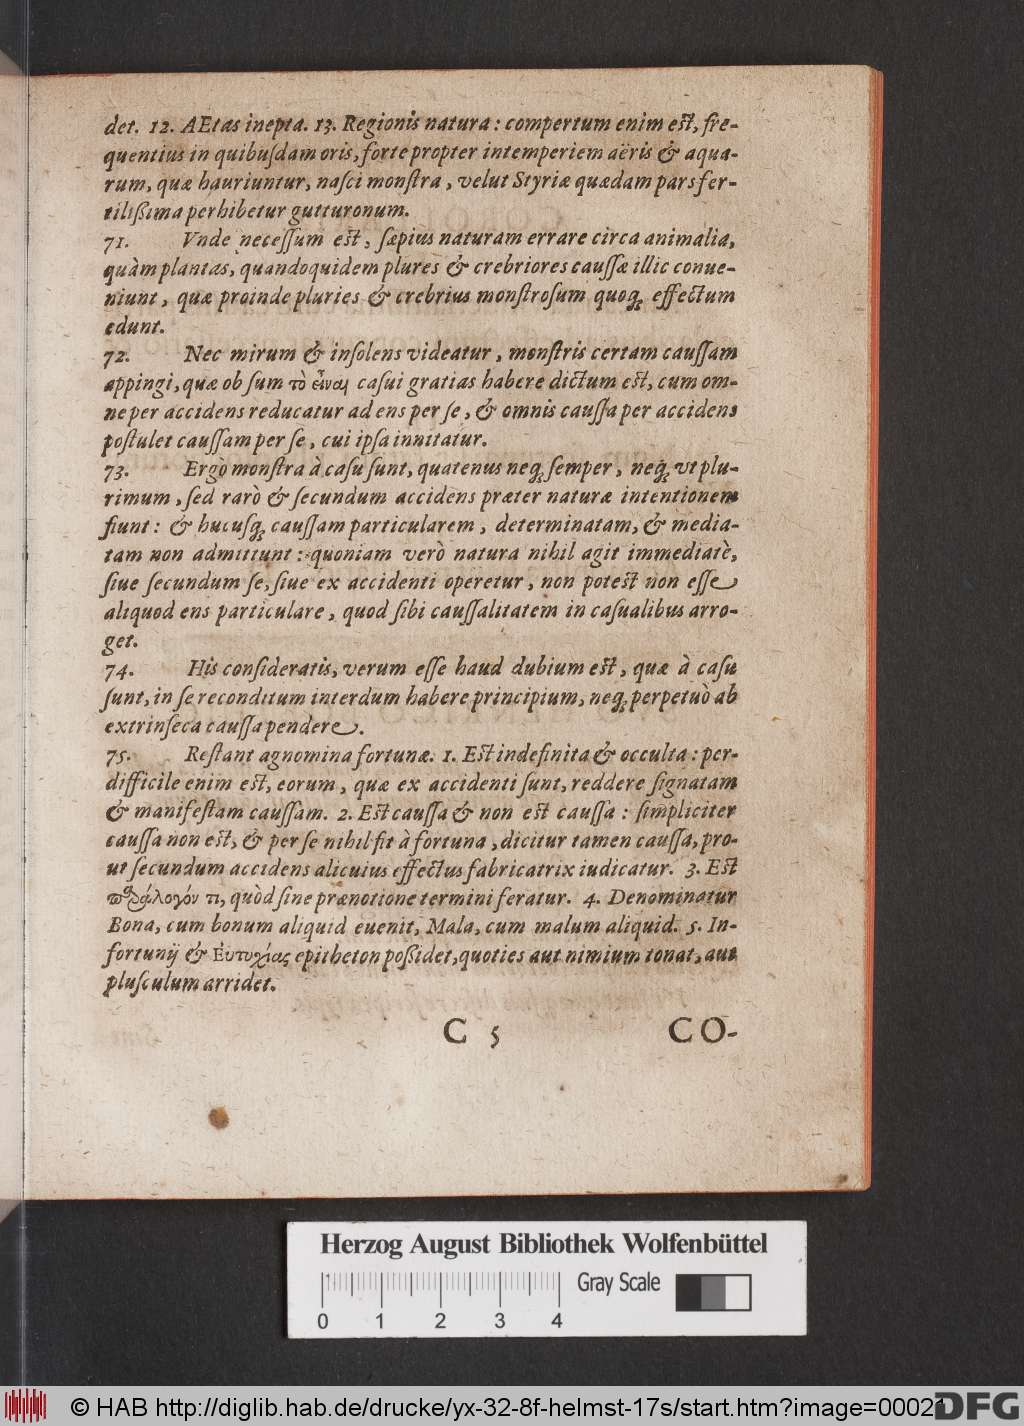 det. 12. AEtas inepta. 13. Regionis natura: compertum enim est, fre-
quentius in quibuſdam oris, forte propter intemperiem aëris & aqua-
rum, quæ hauriuntur, naſci monſtra, velut Styriæ quædam pars fer-
tilißima perhibetur gutturonum.
71. Vnde neceſſum est, ſæpius naturam errare circa animalia,
quàm plantas, quandoquidem plures & crebriores cauſſæ illic conue-
niunt, quæ proinde pluries & crebrius monſtroſum quoq; effectum
edunt.
72. Nec mirum & inſolens videatur, monſtris certam cauſſam
appingi, quæ ob ſum τὸ εἶναι caſui gratias habere dictum est, cum om-
ne per accidens reducatur ad ens per ſe, & omnis cauſſa per accidens
poſtulet cauſſam per ſe, cui ipſa innitatur.
73. Ergò monſtra à caſu ſunt, quatenus neq; ſemper, neq; vt plu-
rimum, ſed rarò & ſecundum accidens præter naturæ intentionem
fiunt: & hucuſq; cauſſam particularem, determinatam, & media-
tam non admittunt: quoniam verò natura nihil agit immediatè,
ſiue ſecundum ſe, ſiue ex accidenti operetur, non potest non eſſe
aliquod ens particulare, quod ſibi cauſſalitatem in caſualibus arro-
get.
74. His conſideratis, verum eſſe haud dubium est, quæ à caſu
ſunt, in ſe reconditum interdum habere principium, neq; perpetuò ab
extrinſeca cauſſa pendere.
75. Reſtant agnomina fortunæ. 1. Est indefinita & occulta: per-
difficile enim est, eorum, quæ ex accidenti ſunt, reddere ſignatam
& manifeſtam cauſſam. 2. Est cauſſa & non est cauſſa: ſimpliciter
cauſſa non est, & per ſe nihil fit à fortuna, dicitur tamen cauſſa, pro-
ut ſecundum accidens alicuius effectus fabricatrix iudicatur. 3. Est
παράλογόν τι, quòd ſine prænotione termini feratur. 4. Denominatur
Bona, cum bonum aliquid euenit, Mala, cum malum aliquid. 5. In-
fortunij & Ἐυτυχίας epitheton poßidet, quoties aut nimium tonat, aut
pluſculum arridet.
C 5 CO-
Herzog August Bibliothek Wolfenbüttel
Gray Scale
0 1 2 3 4
© HAB http://diglib.hab.de/drucke/yx-32-8f-helmst-17s/start.htm?image=00021
DFG